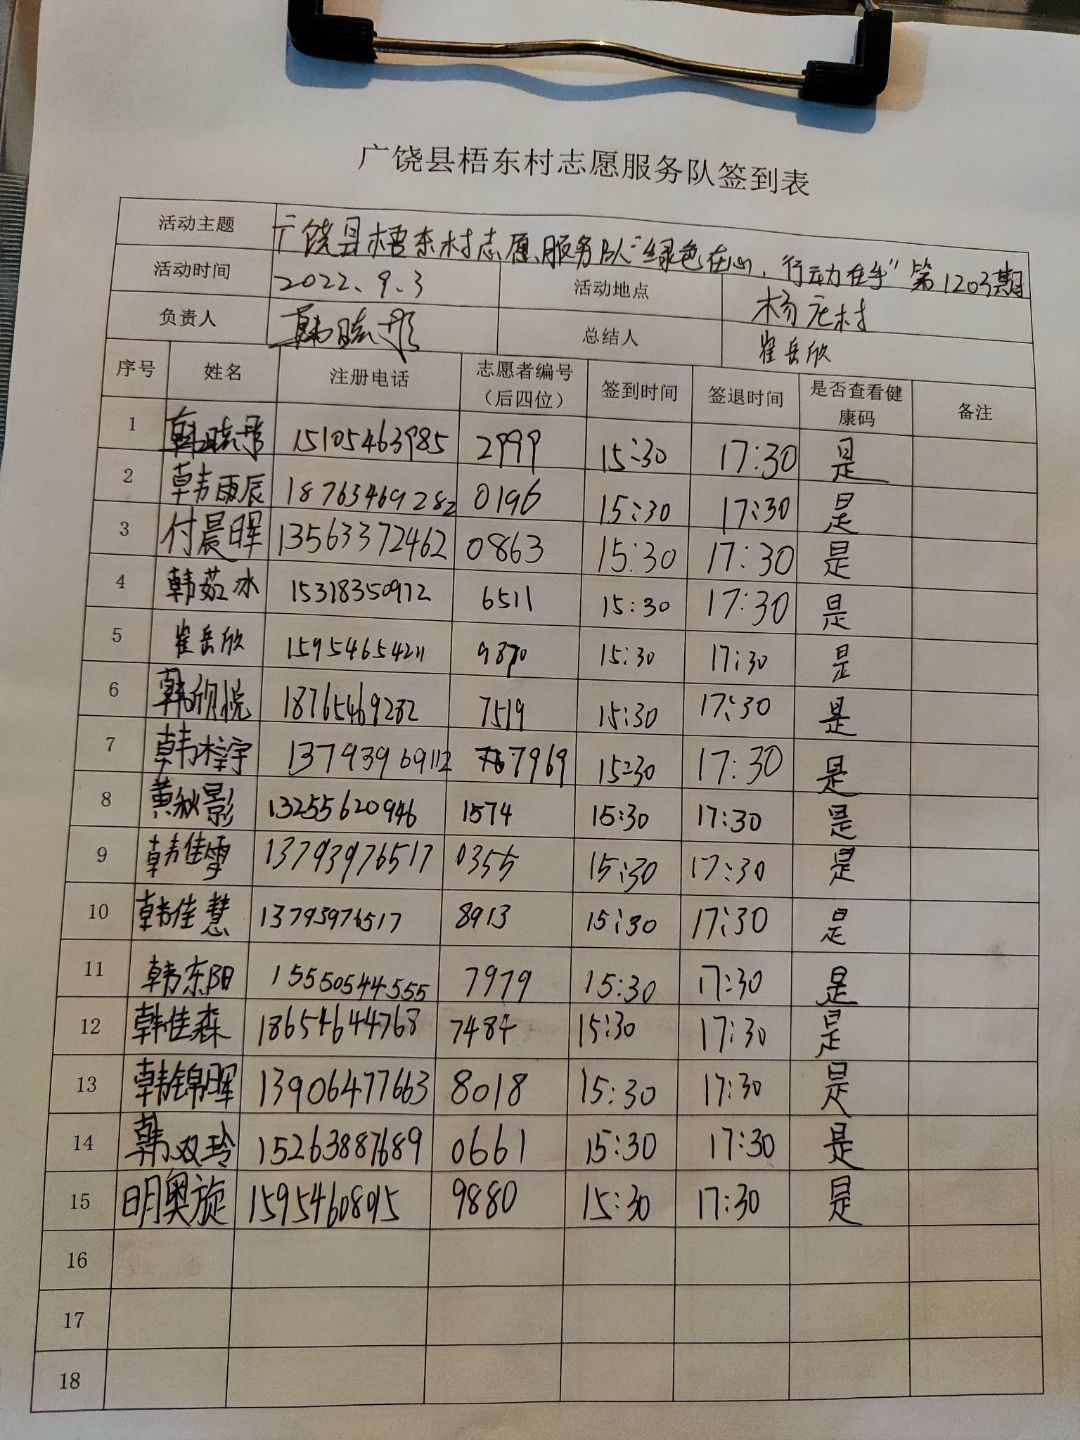 广饶县梧东村志愿服务队签到表
活动主题 广饶县梧东村志愿服务队“绿色在心，行动在手”第1203期
活动时间 2022.9.3 活动地点 杨庄村
负责人 韩晓彤 总结人 崔岳欣
序号 姓名 注册电话 志愿者编号（后四位） 签到时间 签退时间 是否查看健康码 备注
1 韩晓彤 15105463985 2999 15:30 17:30 是
2 韩雨辰 18765469282 0196 15:30 17:30 是
3 付晨晖 13563372462 0863 15:30 17:30 是
4 韩茹冰 15318350972 6511 15:30 17:30 是
5 崔岳欣 15954654211 9870 15:30 17:30 是
6 韩欣悦 18765469282 7519 15:30 17:30 是
7 韩梓宇 13793969112 7969 15:30 17:30 是
8 黄秋影 13255620946 1574 15:30 17:30 是
9 韩佳雪 13793976517 0355 15:30 17:30 是
10 韩佳慧 13793976517 8913 15:30 17:30 是
11 韩东阳 15550544555 7979 15:30 17:30 是
12 韩佳森 18654644768 7484 15:30 17:30 是
13 韩锦晖 13906477663 8018 15:30 17:30 是
14 韩双玲 15263887689 0661 15:30 17:30 是
15 明奥旋 9880 15:30 17:30 是
16
17
18